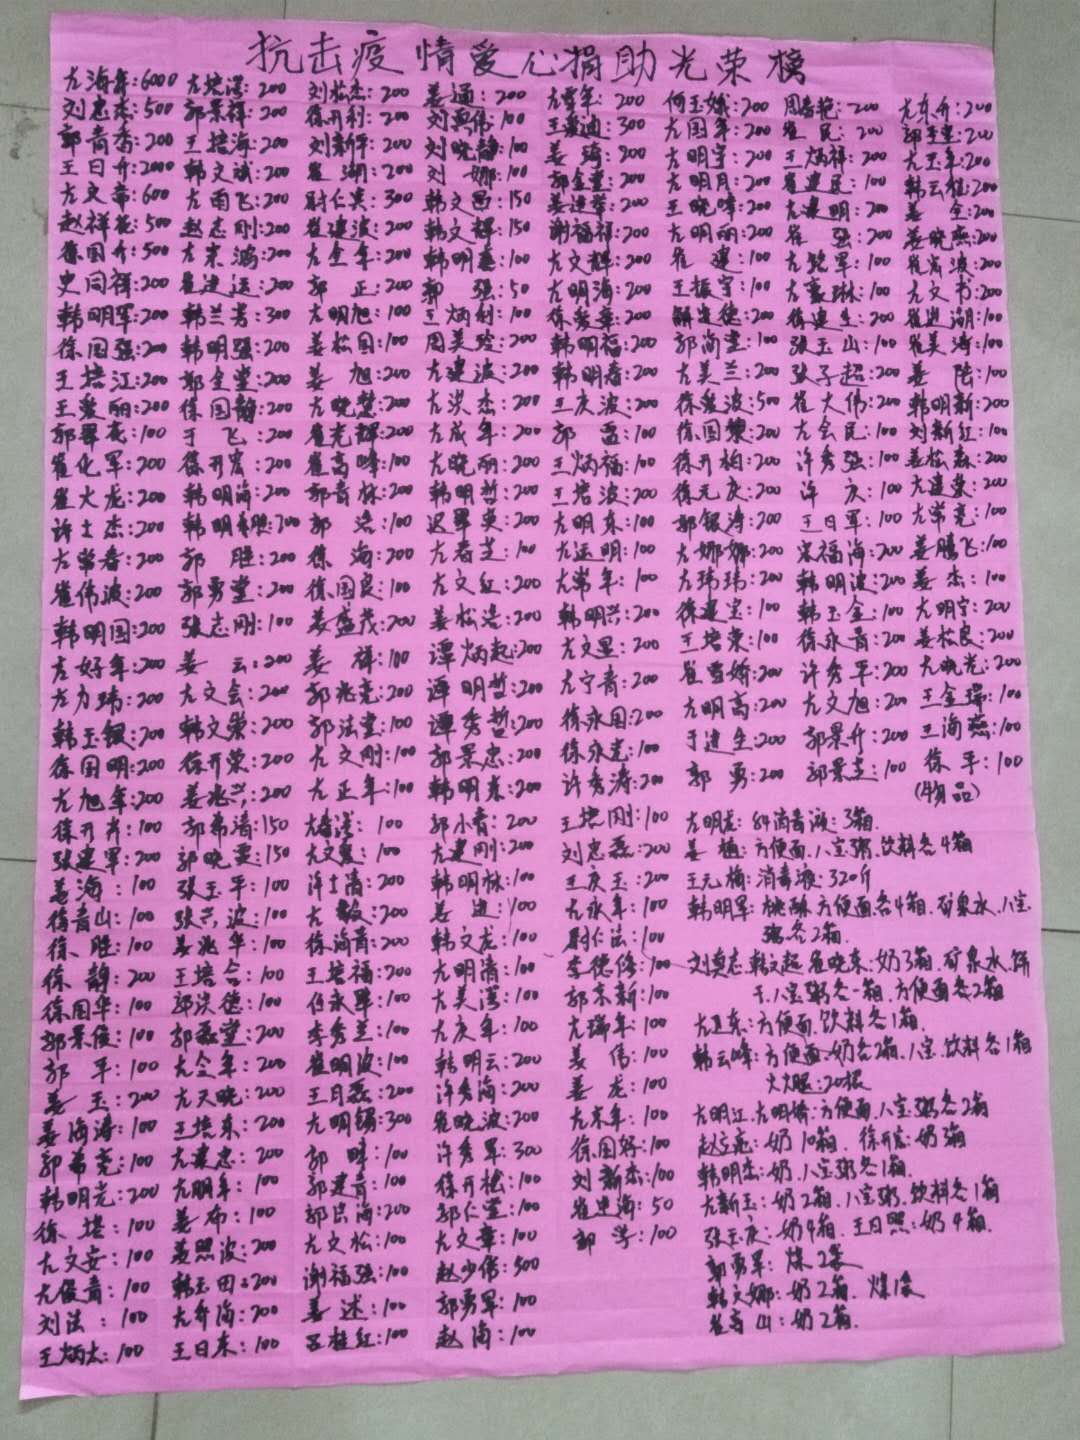 抗击疫情爱心捐助光荣榜
尤海年:6000
刘忠杰:500
郭青香:200
王日升:2000
尤文帝:600
赵祥花:500
徐国升:500
史同祥:200
韩明军:200
徐国强:200
王培江:200
王爱丽:200
郭翠花:100
崔化军:200
崔火龙:200
许士杰:200
尤常春:200
崔伟波:200
韩明国:200
尤好年:200
尤力玮:200
韩玉银:200
徐国明:200
尤旭年:200
徐开芹:100
张建军:200
姜海:100
徐青山:100
徐胜:100
徐韵:200
徐国华:100
郭景俊:100
郭平:100
姜玉:200
姜海涛:100
郭希尧:100
韩明光:200
徐堪:100
尤文安:100
尤俊青:100
刘法:100
王炳太:100
郭景祥:200
王培海:200
韩文斌:200
尤雨飞:200
赵志刚:200
尤宗鸿:200
崔建运:200
韩兰芳:300
韩明强:200
郭全堂:200
徐国韵:200
于飞:200
徐开宏:200
韩明海:200
郭胜:200
郭勇堂:200
张志刚:100
姜云:200
尤文会:200
韩文荣:200
徐开荣:200
姜兆兴:200
郭希清:150
郭晓雯:150
张玉平:100
张兴波:100
姜兆华:100
王培合:100
郭洪德:100
郭磊堂:200
尤全年:200
尤天晓:200
王培东:200
尤建忠:200
尤朋年:100
姜布:100
姜照波:200
韩玉田:200
尤升海:200
王日东:100
刘松杰:200
徐开利:200
刘新平:200
崔湖:200
尉仁兴:300
崔建波:200
尤全年:200
郭正:200
尤明旭:100
姜松国:100
姜旭:200
尤晓楚:200
崔光辉:200
崔高峰:100
郭青林:200
郭浩:100
徐海:200
徐国良:100
姜盛茂:200
姜祥:100
郭兆亮:200
郭法堂:100
尤文刚:100
尤正年:100
许士清:200
尤敏:200
徐海青:200
王培福:200
徐永军:100
李秀兰:100
崔明波:100
王月磊:200
尤明锡:300
郭峰:100
郭建青:100
郭民海:200
尤文松:100
谢福强:100
姜述:100
吕桂红:100
姜通:200
刘真伟:100
刘晓静:100
刘娜:100
韩文西:150
韩文辉:150
韩明春:100
郭强:50
王炳利:100
周美玲:200
尤建波:200
尤洪杰:200
尤成年:200
尤晓丽:200
韩明哲:200
迟翠英:200
尤春芝:100
尤文红:200
姜松浩:200
谭炳起:200
谭明哲:200
谭秀哲:200
郭景忠:200
韩明东:200
郭小青:200
尤建刚:200
韩明林:100
姜进:100
韩文龙:100
尤明清:100
尤美湾:100
尤庆年:100
韩明云:200
许秀海:200
崔晓波:200
许秀军:300
徐开松:100
郭仁堂:100
尤文章:100
赵少伟:500
郭勇军:100
赵海:100
尤雪年:200
王爱迪:300
姜琦:200
郭金堂:200
姜建华:200
谢福祥:200
尤文辉:200
尤明海:200
徐爱章:200
韩明福:200
韩明春:200
王庆波:200
郭雷:100
王炳福:100
王培波:200
尤明东:100
尤运明:100
尤常年:100
韩明兴:200
尤文星:200
尤宁青:200
徐永国:200
徐永光:100
许秀涛:200
王培刚:100
刘忠磊:200
王庆玉:200
尤永年:100
尉仁法:100
李德修:100
郭京新:100
尤瑞年:100
姜伟:100
姜龙:100
尤宗年:100
徐国好:100
刘新杰:100
崔建海:50
郭学:100
何玉娥:200
尤国年:200
尤明宇:200
尤明月:200
王晓峰:200
尤明丽:200
崔建:100
王振宇:100
解建德:200
郭尚堂:100
尤美兰:200
徐爱波:500
徐国策:200
徐开柏:200
徐元庆:200
郭银涛:200
尤娜娜:200
尤玮玮:200
徐建宝:100
王培荣:100
崔雪娇:200
尤明高:200
于建生:200
郭勇:200
周春艳:200
崔民:200
王炳祥:200
崔建民:100
尤建明:200
崔强:200
尤铭军:100
尤豪琳:100
徐建生:200
张玉山:100
张子超:200
崔大伟:200
尤会民:100
许秀强:100
许庆:100
王日军:100
宋福海:200
韩明波:200
韩玉金:100
徐永青:200
许秀平:200
尤文旭:200
郭景升:200
郭景芝:100
尤东升:200
郭奎堂:200
尤玉年:200
韩云程:200
姜全:200
姜晓燕:200
崔尚波:200
尤文书:200
崔迎湖:100
崔美涛:100
姜陆:100
韩明新:200
刘新红:100
姜松森:200
尤建荣:200
尤常亮:100
姜腾飞:100
姜杰:100
尤明宁:200
姜松良:200
尤晓光:200
王金瑞:100
王海燕:100
徐平:100
(物品)
尤明龙:84消毒液:3箱.
姜植:方便面.八宝粥.饮料各4箱
王元梅:消毒液:320斤
韩明军:桃酥.方便面各4箱.矿泉水.八宝
粥各2箱.
刘真志.韩文超.崔晓东:奶3箱.矿泉水.饼
干.八宝粥各一箱.方便面各2箱
尤卫东:方便面.饮料各1箱.
韩云峰:方便面:奶各2箱.八宝.饮料各1箱
火腿:20根
尤明江.尤明娇:方便面.八宝粥各2箱
赵立亮:奶10箱.徐开宏:奶3箱
韩明杰:奶.八宝粥各1箱.
尤新玉:奶2箱.八宝粥.饮料各1箱
张玉庆:奶4箱.王日照:奶4箱.
郭勇军:煤2袋
韩文娜:奶2箱.煤1袋
崔奇山:奶2箱.